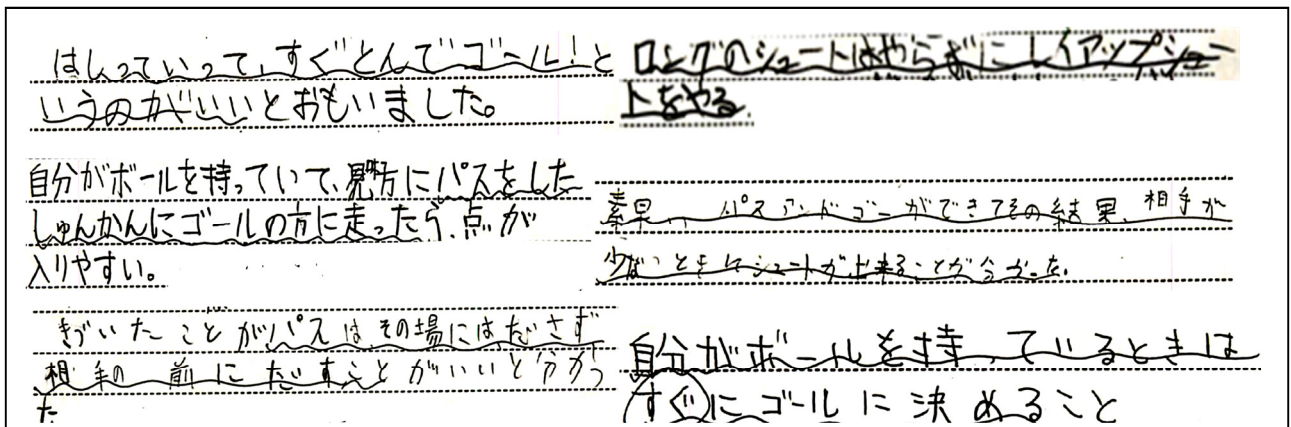 はしっていって、すぐとんでゴール!と
いうのがいいとおもいました。
自分がボールを持っていて、見方にパスをした
しゅんかんにゴールの方に走ったら、点が
入りやすい。
きづいたことがパスはその場にはださず
相手の前にだすことがいいと分かっ
た
ロングのシュートはやらずにレイアップシュー
トをやる
素早い パスアンドゴーができてその結果、相手が
少ないときにシュートが出来ることが分かった。
自分がボールを持っているときは
すぐにゴールに決めること